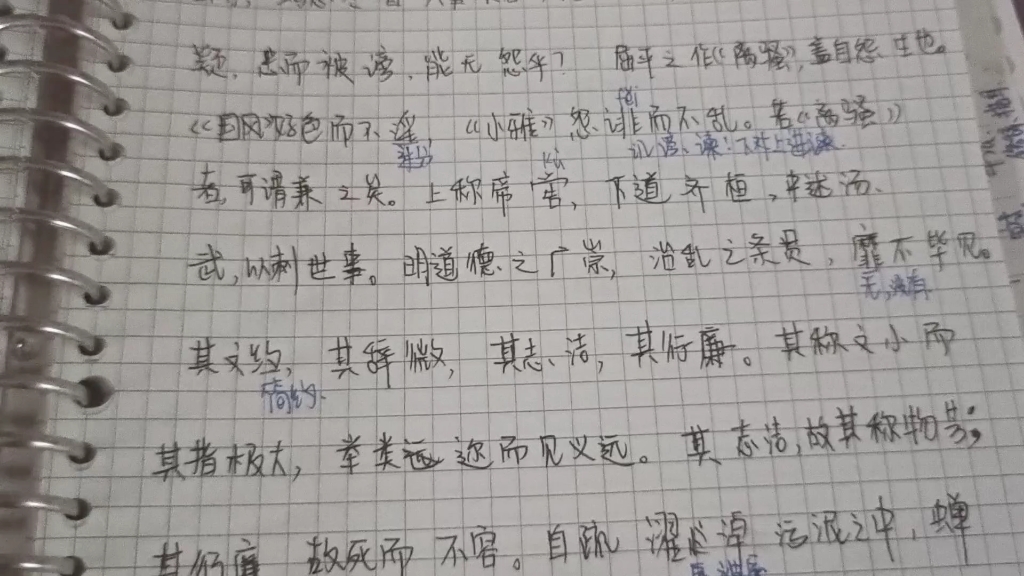 疑，忠而被谤，能无怨乎？屈平之作《离骚》，盖自怨生也。
《国风》好色而不淫，《小雅》怨诽而不乱。若《离骚》
fěi
过分
kù
者，可谓兼之矣。上称帝喾，下道齐桓，中述汤、
武，以刺世事。明道德之广崇，治乱之条贯，靡不毕见。
无，没有
其文约，其辞微，其志洁，其行廉。其称文小而
简约
其指极大，举类迩而见义远。其志洁，故其称物芳；
其行廉，故死而不容。自疏濯淖污泥之中，蝉